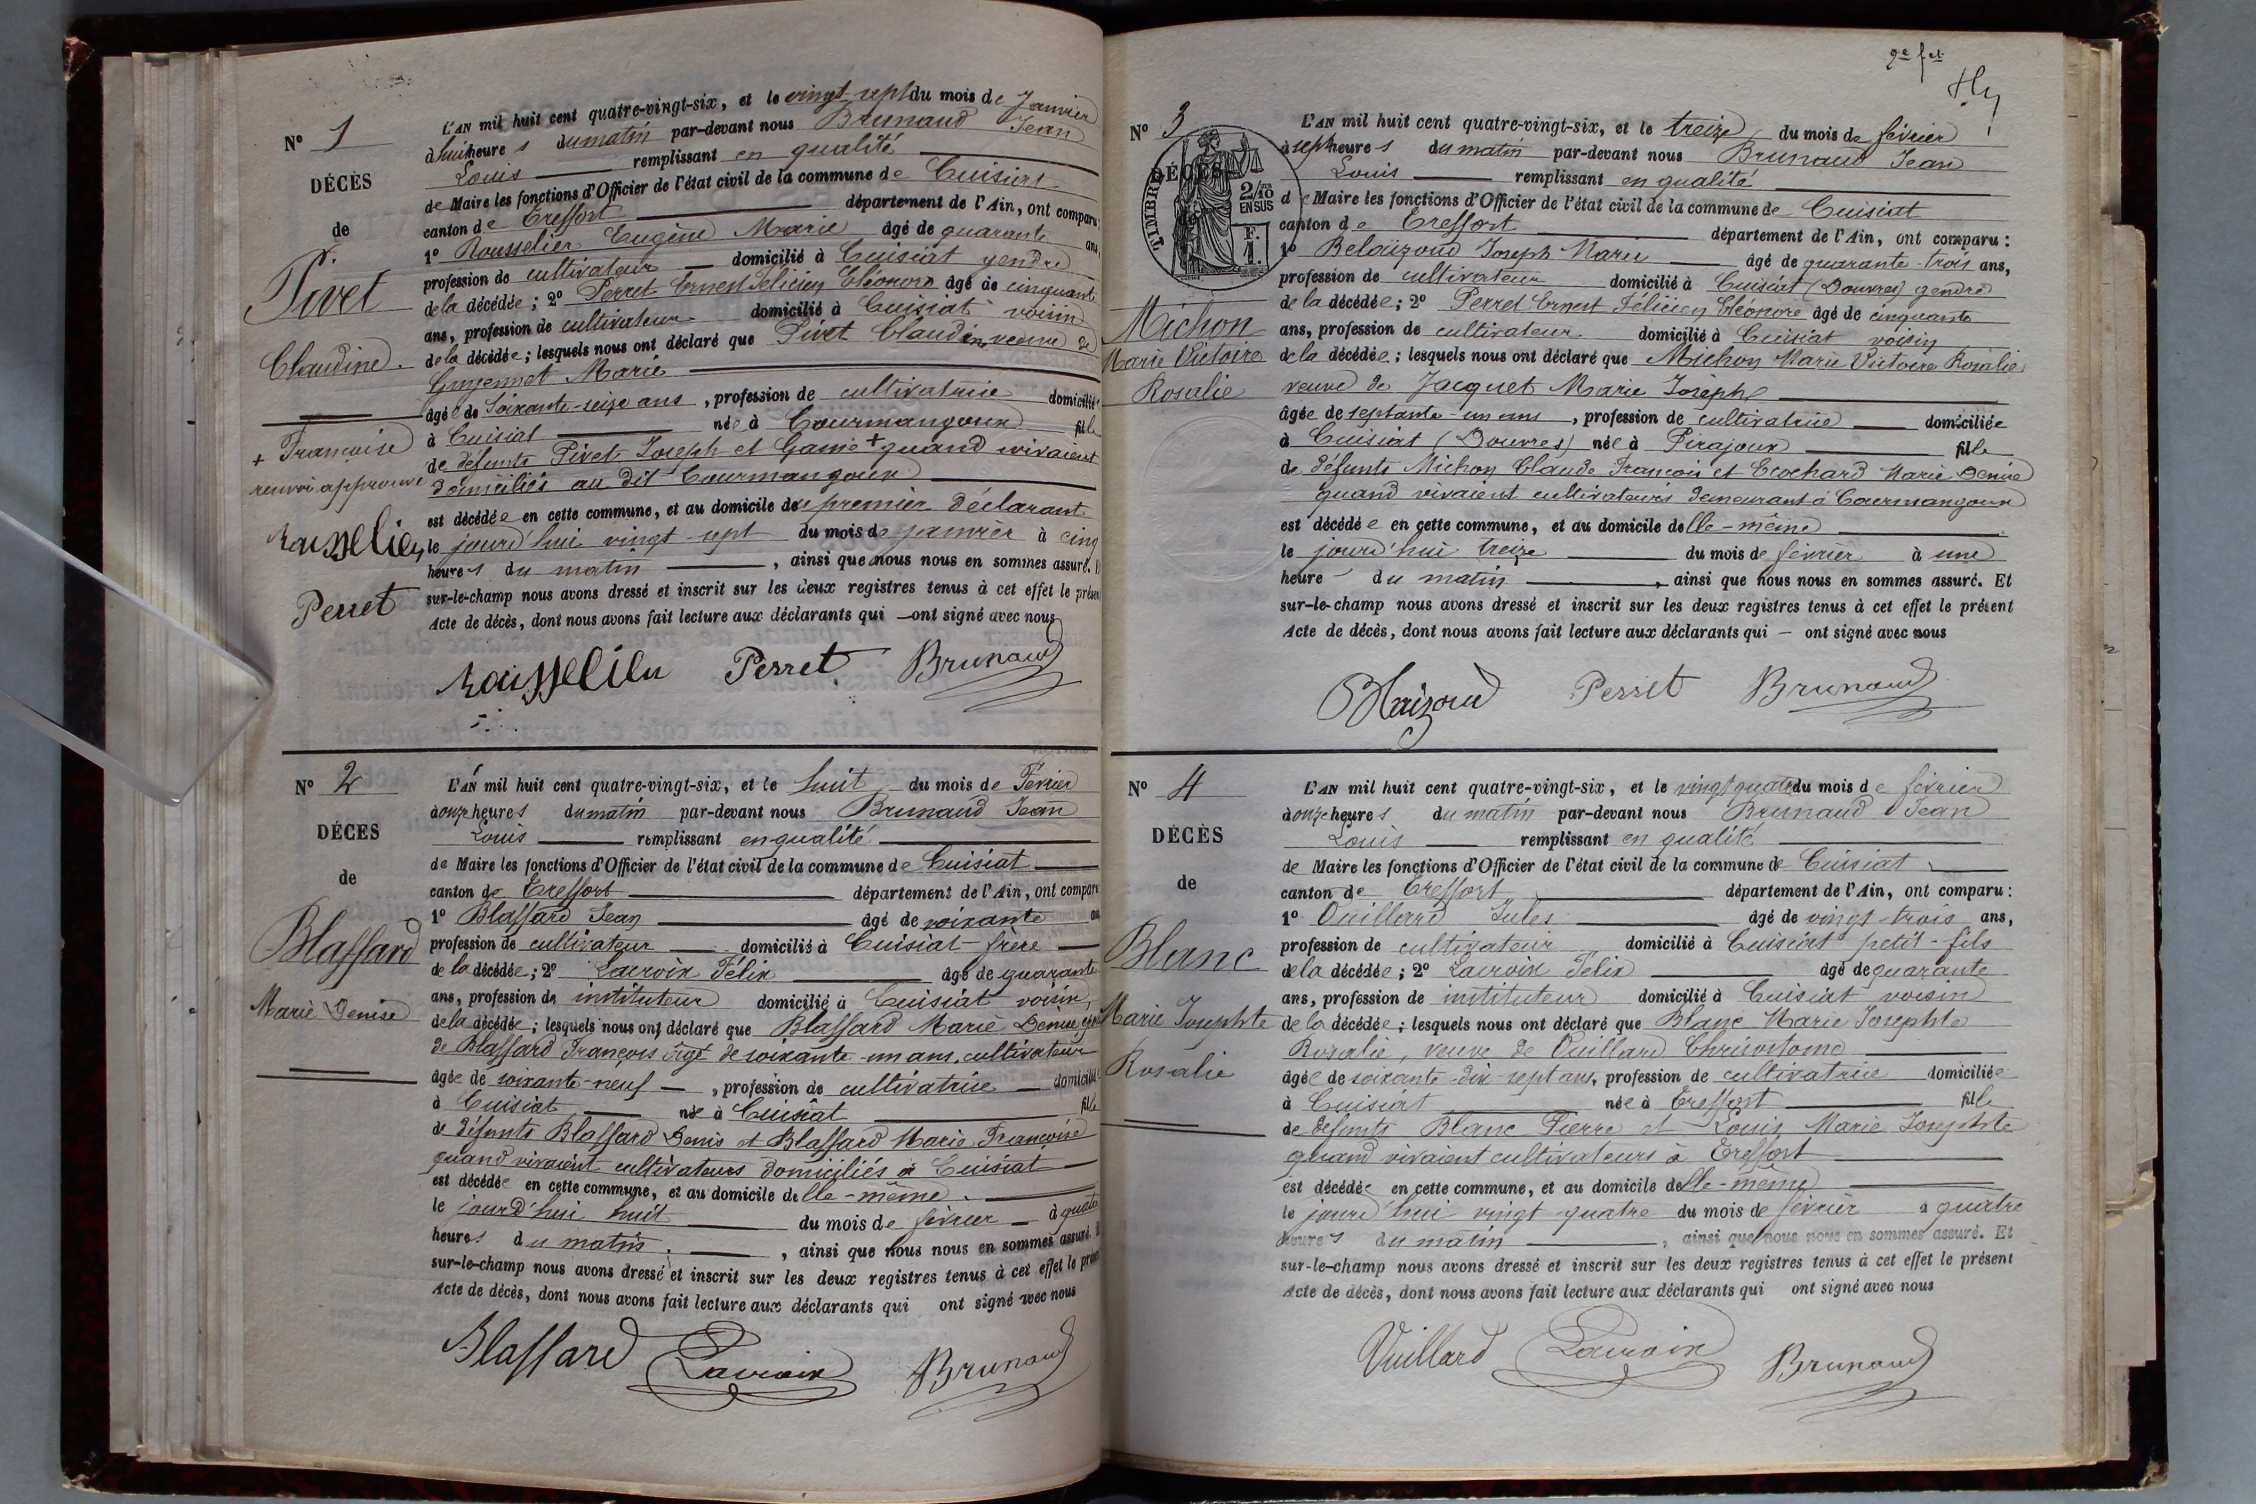 Nº 1
DÉCÈS
de
Pivet
Claudine
+ Françoise
renvoi approuvé
Rousselier
Perret
L'AN mil huit cent quatre-vingt-six, et le vingt-sept du mois de Janvier
à huit heures du matin par-devant nous Brunaud Jean
Louis remplissant en qualité
de Maire les fonctions d'Officier de l'état civil de la commune de Cuisiat
canton de Treffort département de l'Ain, ont comparu:
1º Rousselier Eugène Marie âgé de quarante ans,
profession de cultivateur domicilié à Cuisiat gendre
de la décédée; 2º Perret Ernest Félicien Eléonore âgé de cinquante
ans, profession de cultivateur domicilié à Cuisiat voisin
de la décédée; lesquels nous ont déclaré que Pivet Claudine veuve de
Guyennet Marie
âgée de Soixante-seize ans, profession de cultivatrice domiciliée
à Cuisiat née à Courmangoux fille
de défunts Pivet Joseph et + quand vivaient
domiciliés au dit Courmangoux
est décédée en cette commune, et au domicile du premier déclarant
le jourd'hui vingt-sept du mois de janvier à cinq
heures du matin, ainsi que nous nous en sommes assuré. Et
sur-le-champ nous avons dressé et inscrit sur les deux registres tenus à cet effet le présent
Acte de décès, dont nous avons fait lecture aux déclarants qui — ont signé avec nous
Rousselier Perret Brunaud
Nº 2
DÉCÈS
de
Blaffard
Marie Denise
L'AN mil huit cent quatre-vingt-six, et le huit du mois de Février
à onze heures du matin par-devant nous Brunaud Jean
Louis remplissant en qualité
de Maire les fonctions d'Officier de l'état civil de la commune de Cuisiat
canton de Treffort département de l'Ain, ont comparu
1º Blaffard Jean âgé de soixante ans
profession de cultivateur domicilié à Cuisiat frère
de la décédée; 2º Lacroix Félix âgé de quarante
ans, profession de instituteur domicilié à Cuisiat voisin,
de la décédée; lesquels nous ont déclaré que Blaffard Marie Denise
de Blaffard François âgé de soixante-un ans, cultivateur
âgée de soixante-neuf, profession de cultivatrice domiciliée
à Cuisiat née à Cuisiat fille
de défunts Blaffard Denis et Blaffard Marie Françoise
quand vivaient cultivateurs domiciliés à Cuisiat
est décédée en cette commune, et au domicile d'elle-même
le jourd'hui huit du mois de février à quatre
heures du matin, ainsi que nous nous en sommes assuré. Et
sur-le-champ nous avons dressé et inscrit sur les deux registres tenus à cet effet le présent
Acte de décès, dont nous avons fait lecture aux déclarants qui ont signé avec nous
Blaffard Lacroix Brunaud
2e fet
Nº 3
DÉCÈS
TIMBRE
2/10 EN SUS
F. 1.
Michon
Marie Victoire
Rosalie
L'AN mil huit cent quatre-vingt-six, et le treize du mois de février
à sept heures du matin par-devant nous Brunaud Jean
Louis remplissant en qualité
de Maire les fonctions d'Officier de l'état civil de la commune de Cuisiat
canton de Treffort département de l'Ain, ont comparu:
1º Belaizoud Joseph Marie âgé de quarante-trois ans,
profession de cultivateur domicilié à Cuisiat (Douvres) gendre
de la décédée; 2º Perret Ernest Félicien Eléonore âgé de cinquante
ans, profession de cultivateur domicilié à Cuisiat voisin
de la décédée; lesquels nous ont déclaré que Michon Marie Victoire Rosalie
veuve de Jacquet Marie Joseph
âgée de septante-un ans, profession de cultivatrice domiciliée
à Cuisiat (Douvres) née à Pirajoux fille
de défunts Michon Claude François et Ecochard Marie Denise
quand vivaient cultivateurs demeurant à Courmangoux
est décédée en cette commune, et au domicile d'elle-même
le jourd'hui treize du mois de février à une
heure du matin, ainsi que nous nous en sommes assuré. Et
sur-le-champ nous avons dressé et inscrit sur les deux registres tenus à cet effet le présent
Acte de décès, dont nous avons fait lecture aux déclarants qui — ont signé avec nous
Blaizoud Perret Brunaud
Nº 4
DÉCÈS
de
Blanc
Marie Josephte
Rosalie
L'AN mil huit cent quatre-vingt-six, et le vingt quatre du mois de février
à onze heures du matin par-devant nous Brunaud Jean
Louis remplissant en qualité
de Maire les fonctions d'Officier de l'état civil de la commune de Cuisiat
canton de Treffort département de l'Ain, ont comparu:
1º Vuillard Jules âgé de vingt-trois ans,
profession de cultivateur domicilié à Cuisiat petit-fils
de la décédée; 2º Lacroix Félix âgé de quarante
ans, profession de instituteur domicilié à Cuisiat voisin
de la décédée; lesquels nous ont déclaré que Blanc Marie Josephte
Rosalie, veuve de Vuillard Chrisostome
âgée de soixante-dix-sept ans, profession de cultivatrice domiciliée
à Cuisiat née à Treffort fille
de défunts Blanc Pierre et Louis Marie Josephte
quand vivaient cultivateurs à Treffort
est décédée en cette commune, et au domicile d'elle-même
le jourd'hui vingt quatre du mois de février à quatre
heures du matin, ainsi que nous nous en sommes assuré. Et
sur-le-champ nous avons dressé et inscrit sur les deux registres tenus à cet effet le présent
Acte de décès, dont nous avons fait lecture aux déclarants qui ont signé avec nous
Vuillard Lacroix Brunaud